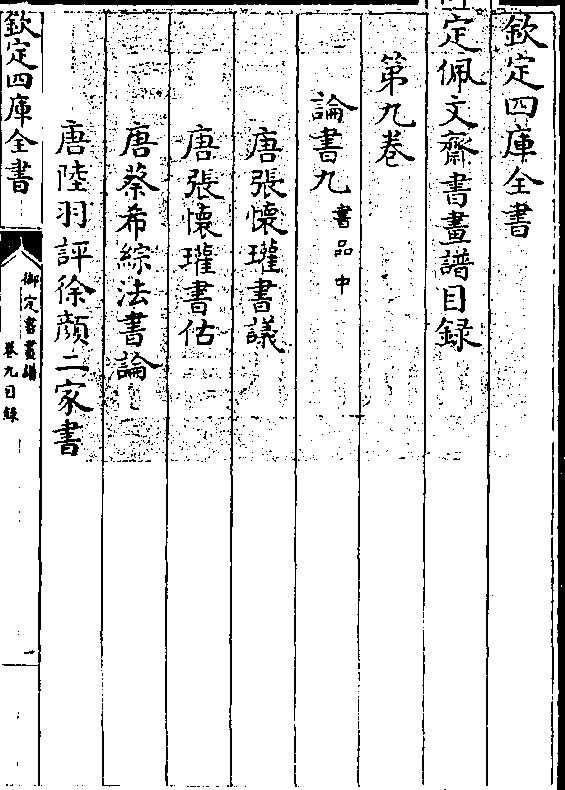 欽定四庫全書
定佩文齋書畫譜目録
第九卷
論書九 書品中
唐張懷瓘書議
唐張懷瓘書估
唐蔡希綜法書論
唐陸羽評徐顔二家書
欽定四庫全書
御定書畫譜
卷九目録
一